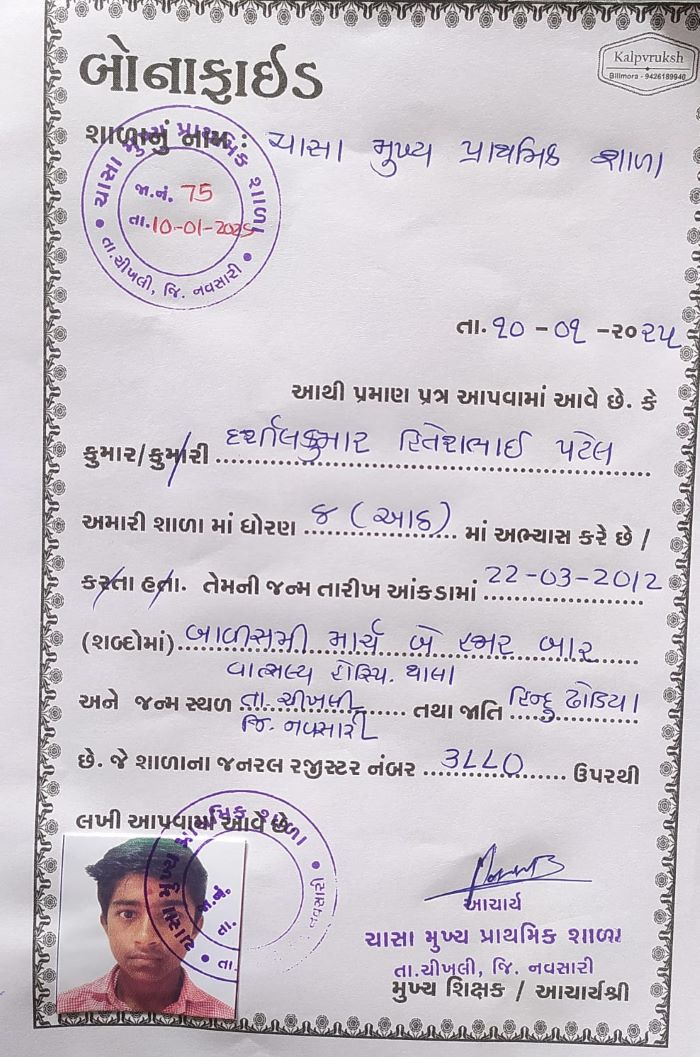 બોનાફાઇડ
Kalpvruksh
Bilimora - 9426189940
શાળાનું નામ : ચાસા મુખ્ય પ્રાથમિક શાળા
ચાસા મુખ્ય પ્રાથમિક શાળા
જા.નં. 75
તા.10-01-2025
તા.ચીખલી, જિ. નવસારી
તા. ૧૦ - ૦૧ - ૨૦૨૫
આથી પ્રમાણ પત્ર આપવામાં આવે છે. કે
કુમાર/કુમારી દર્શીલકુમાર હિતેશભાઈ પટેલ
અમારી શાળા માં ધોરણ ૮ (આઠ) માં અભ્યાસ કરે છે /
કરતા હતા. તેમની જન્મ તારીખ આંકડામાં 22-03-2012
(શબ્દોમાં) બાવીસમી માર્ચ બે હજાર બાર
વાત્સલ્ય હોસ્પિ. થાલા
અને જન્મ સ્થળ તા. ચીખલી તથા જાતિ હિન્દુ ઢોડિયા
જિ. નવસારી
છે. જે શાળાના જનરલ રજીસ્ટર નંબર ૩૮૮૦ ઉપરથી
લખી આપવામાં આવે છે.
ચાસા મુખ્ય પ્રાથમિક શાળા
જા.નં.
તા.
નવસારી
આચાર્ય
ચાસા મુખ્ય પ્રાથમિક શાળા
તા.ચીખલી, જિ. નવસારી
મુખ્ય શિક્ષક / આચાર્યશ્રી